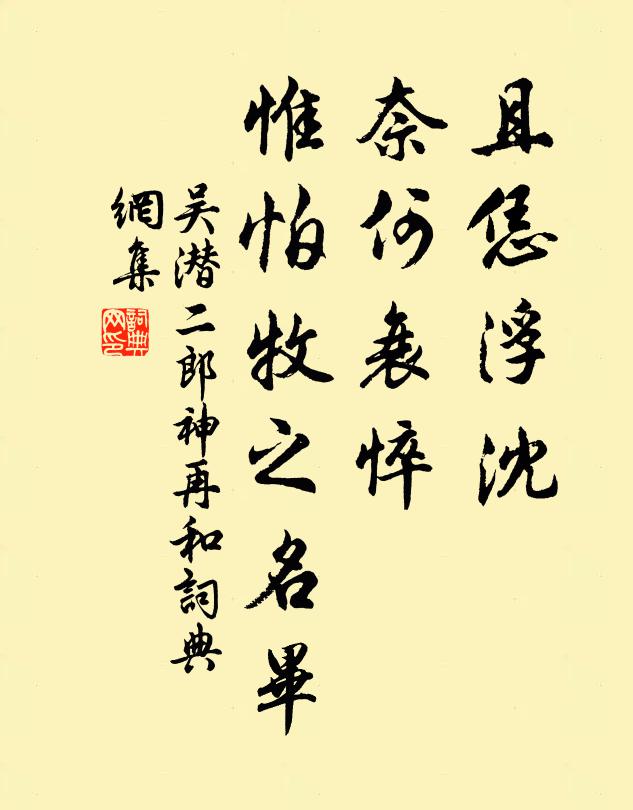 且恁浮沈
奈何衰悴
惟怕牧之名畢
吴潜二郎神再和詞典
網集
詞典网印